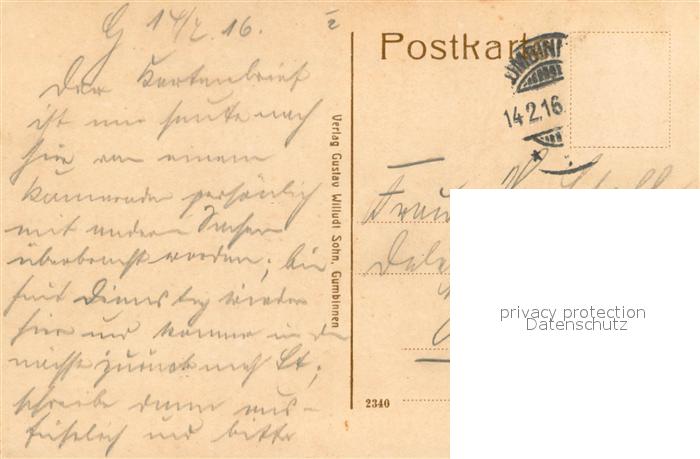 G 14/2. 16.
Der Kartenbrief
ist nur heute nach
hier von einem
Kameraden persönlich
mit anderen Sachen
überbracht worden; bin
seit Dienstag wieder
hier und komme in der
nächste zurück nach St;
schreibe dann aus-
führlich und bitte
Verlag Gustav Willudt Sohn, Gumbinnen
Postkarte
14.2.16
Frau
2340
privacy protection
Datenschutz